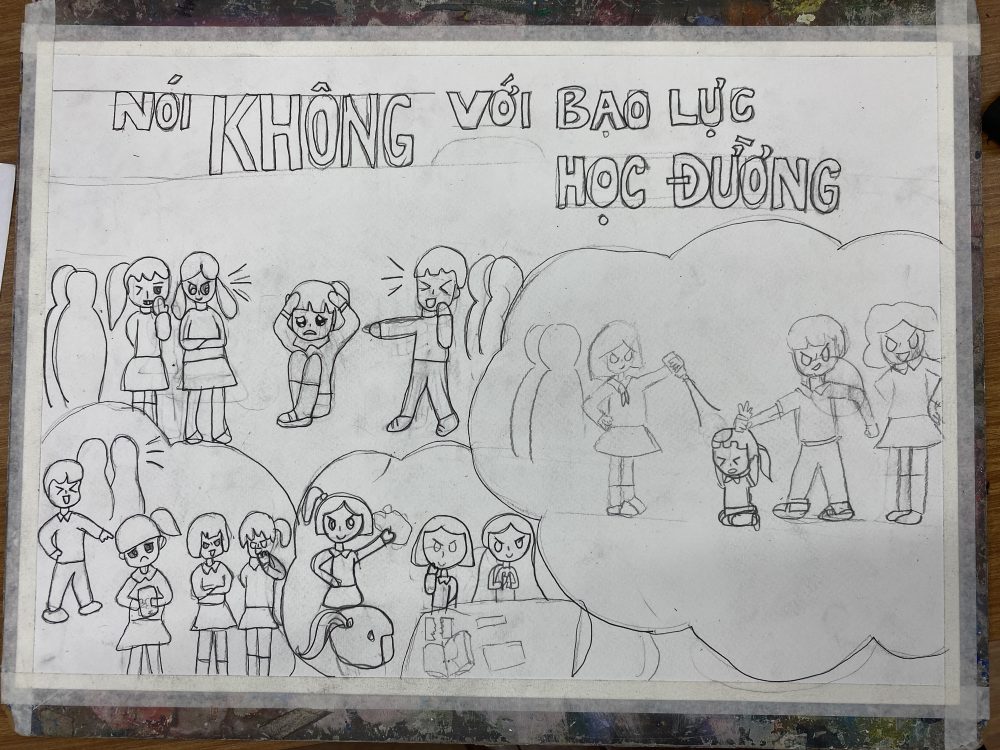 NÓI KHÔNG VỚI BẠO LỰC
HỌC ĐƯỜNG